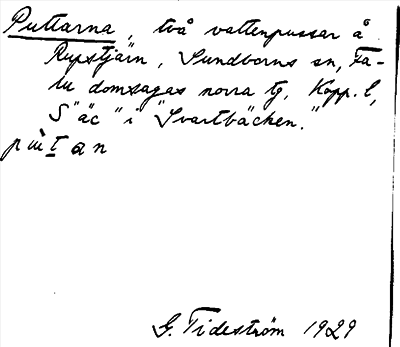 Puttarna, två vattenpussar å
Rupstjärn, Sundborns sn, Fa-
lu domsagas norra tg, Kopp. l,
S "äc" i "Svartbäcken."
pùtan
G. Tideström 1929